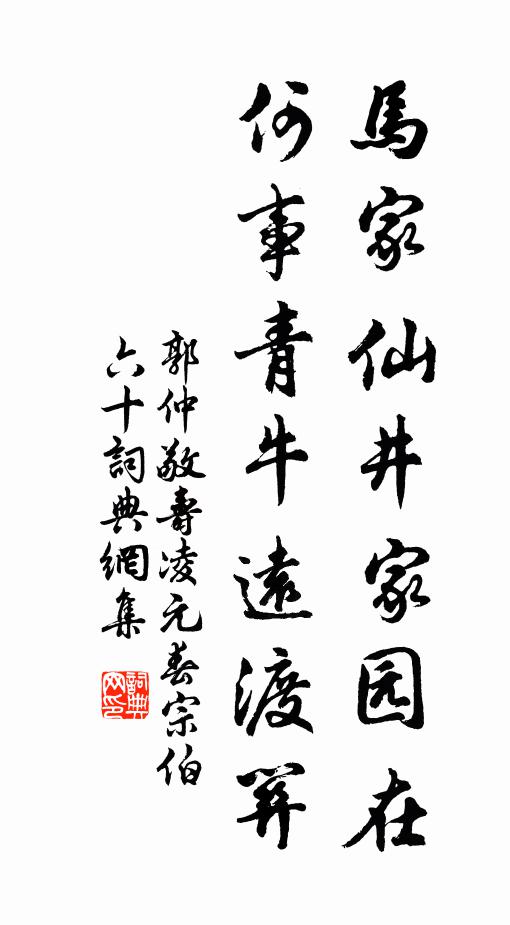 馬家仙井家园在
何事青牛遠渡關
郭仲敬壽凌元春宗伯
六十詞典網集
詞典
网印